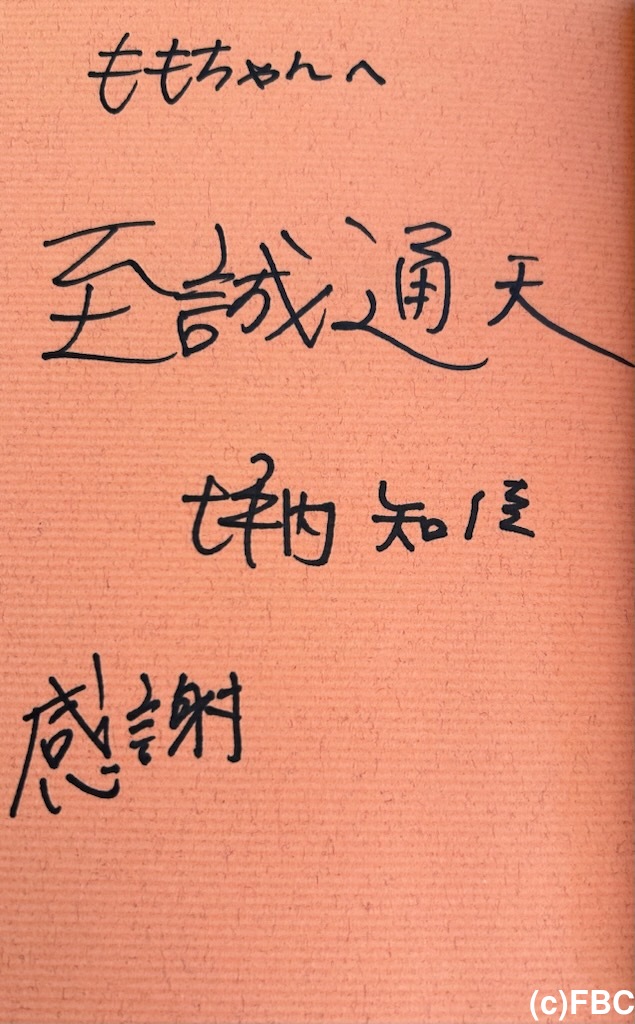 ももちゃんへ
至誠通天
坪内 知佳
感謝
(c)FBC